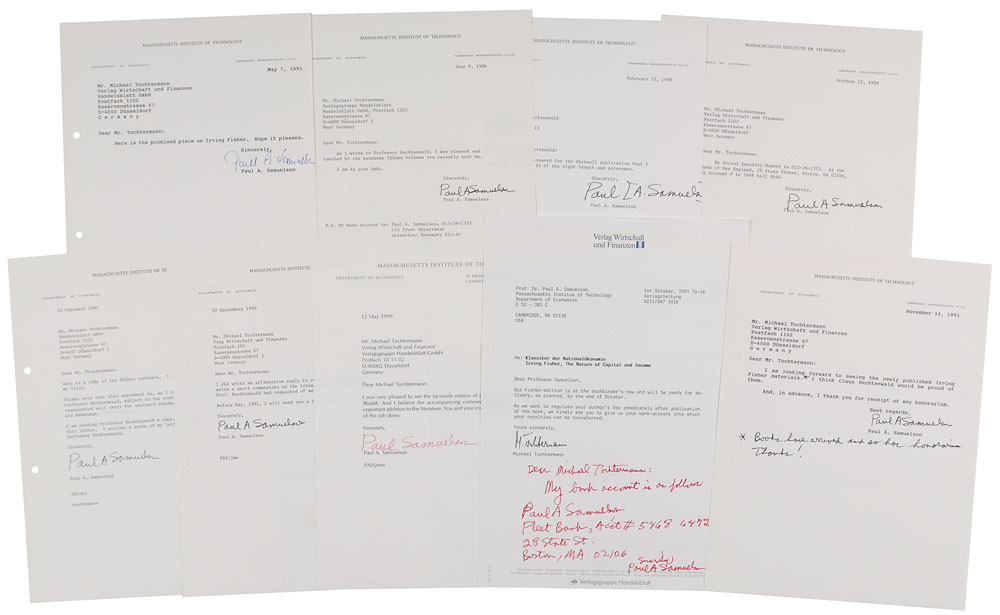 MASSACHUSETTS INSTITUTE OF TECHNOLOGY
DEPARTMENT OF ECONOMICS
CAMBRIDGE, MASSACHUSETTS
May 7, 1991
Mr. Michael Tochtermann
Verlag Wirtschaft und Finanzen
Handelsblatt GmbH
Postfach 1102
Kasernenstrasse 67
D-4000 Düsseldorf
Germany
Dear Mr. Tochtermann:
Here is the promised piece on Irving Fisher. Hope it pleases.
Sincerely,
Paul A Samuelson
Paul A. Samuelson
MASSACHUSETTS INSTITUTE OF TECHNOLOGY
OF ECONOMICS
CAMBRIDGE, MASSACHUSETTS
Mr. Michael Tochtermann
Verlagsgruppe Handelsblatt
Postfach 1102
Kasernenstrasse 67
D-4000 Düsseldorf 1
West Germany
Dear Mr. Tochtermann:
As I wrote to Professor Recktenwald, I was pleased and
touched by the handsome Thünen volumes you recently send me.
I am in your debt.
Sincerely,
Paul A Samuelson
Paul A. Samuelson
P.S. My bank account is: Paul A. Samuelson,
c/o Trust Department
attention: Rosemary
MASSACHUSETTS INSTITUTE OF TECHNOLOGY
CAMBRIDGE, MASSACHUSETTS
February 23, 1988
for the Wicksell publication that I
is of the right length and relevance.
Sincerely,
Paul A. Samuels
Paul A. Samuelson
MASSACHUSETTS INSTITUTE OF TECHNOLOGY
OF ECONOMICS
CAMBRIDGE, MASSACHUSETTS
Mr. Michael Tochtermann
Verlag Wirtschaft und Finanzen
Postfach 1102
Kasernenstrasse 67
D-4000 Düsseldorf 1
West Germany
Dear Mr. Tochtermann:
My Social Security Number is At the
Bank of New England, 28 State Street, Boston, MA 02106,
my Account # is
Sincerely,
Paul A Samuelson
Paul A. Samuelson
MASSACHUSETTS INSTITUTE OF
DEPARTMENT OF ECONOMICS
February
Mr. Michael Tochtermann
Handelsblatt GmbH
Postfach 1102
Kasernenstrasse 67
D-4000 Düsseldorf
West Germany
Dear Mr. Tochtermann:
Here is a copy of the Thünen contract,
my files.
Please note that this agreement is, as I
Professor Recktenwald, subject to the
translation will carry the enclosed
and Addendum.
I am sending Professor Recktenwald a
this letter. I enclose a note of my
Professor Recktenwald.
Sincerely,
Paul A Samuelson
Paul A. Samuelson
enclosures
MASSACHUSETTS INSTITUTE
DEPARTMENT OF ECONOMICS
20 September
Mr. Michael Tochtermann
Handelsblatt GmbH
Postfach 1102
Kasernenstrasse 67
D-4000 Düsseldorf 1
West Germany
Dear Mr. Tochtermann:
I did write an affirmative reply to
write a short commentary on the
Recktenwald had requested of
Before May, 1991, I will send you a
Paul A Samuelson
Paul A. Samuelson
PAS/jmm
MASSACHUSETTS INSTITUTE OF TE
DEPARTMENT OF ECONOMICS
12 May 1999
Mr. Michael Tochtermann
Verlag Wirtschaft und Finanzen
Verlagsgruppe Handelsblatt GmbH
Postfach 10 11 02
Düsseldorf
Germany
Dear Michael Tochtermann
I was very pleased to see the facsimile edition of
Wealth. And I believe the accompanying
important addition to the literature. You and your
of the job done.
Sincerely,
Paul A Samuelson
Paul A. Samuelson
PAS/jmm
Verlag Wirtschaft
und Finanzen
Prof. Dr. Paul A. Samuelson
Massachusetts Institue of Technology
Department of Economics
CAMBRIDGE, MA 02139
USA
1st October, 1991
Verlagsleitung
Re: Klassiker der Nationalökonomie
Irving Fisher, The Nature of Capital and Income
Dear Professor Samuelson,
Our Fisher-edition is at the bookbinder's now and will be ready for de-
livery, as planned, by the end of October.
As we want to regulate your author's fee immediately after publication
of the book, we kindly ask you to give us your bank-account into which
your royalties can be transferred.
Yours sincerely,
Michael Tochtermann
Dear Michael Tochtermann:
My bank account is as follows
Paul A Samuelson
Fleet Bank, Acct # 5468 6472
28 State St.
Boston, MA. 02106
Sincerely,
Paul A Samuelson
Verlagsgruppe Handelsblatt
MASSACHUSETTS INSTITUTE OF TECHNOLOGY
DEPARTMENT OF ECONOMICS
CAMBRIDGE, MASSACHUSETTS
November 14, 1991
Mr. Michael Tochtermann
Verlag Wirtschaft und Finanzen
Postfach 1102
Kasernenstrasse 67
D-4000 Düsseldorf 1
Germany
Dear Mr. Tochtermann:
I am looking forward to seeing the newly published Irving
Fisher materials.* I think Claus Recktenwald would be proud of
them.
And, in advance, I thank you for receipt of any honorarium.
Best regards,
Paul A Samuelson
Paul A. Samuelson
* Books have arrived and so has honorarium.
Thanks!